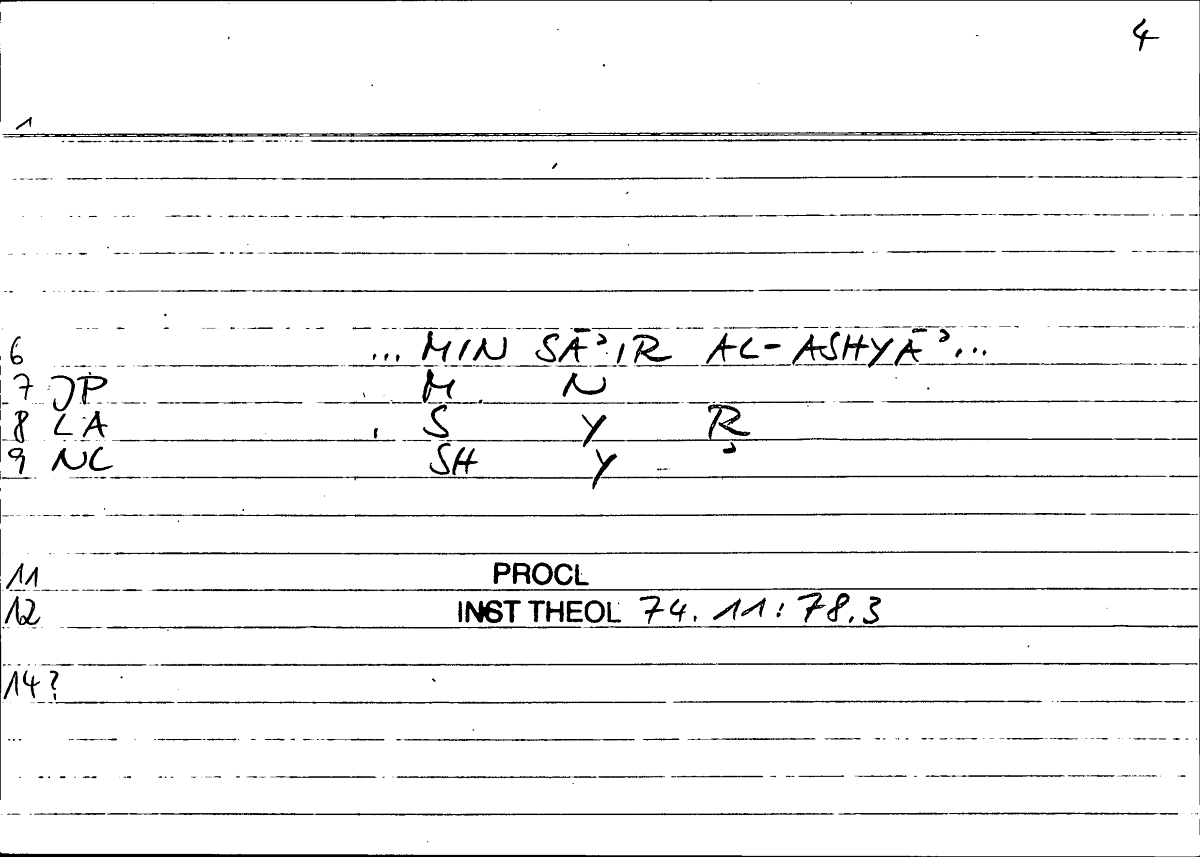 4
1
6 ... MIN SĀʾIR AL-ASHYĀʾ...
7 JP M N
8 LA S Y R
9 NC SH Y ʾ
11 PROCL
12 INST THEOL 74.11:78.3
14?